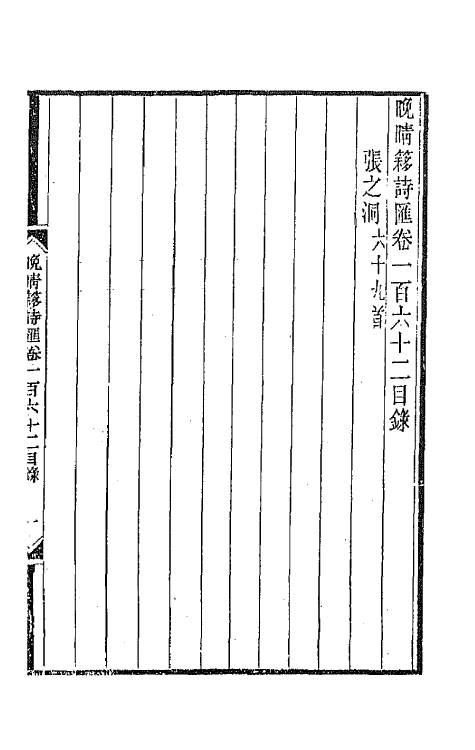 晚晴簃詩匯卷一百六十二目錄
張之洞六十九首
晚晴簃詩匯卷一百六十二目錄
一